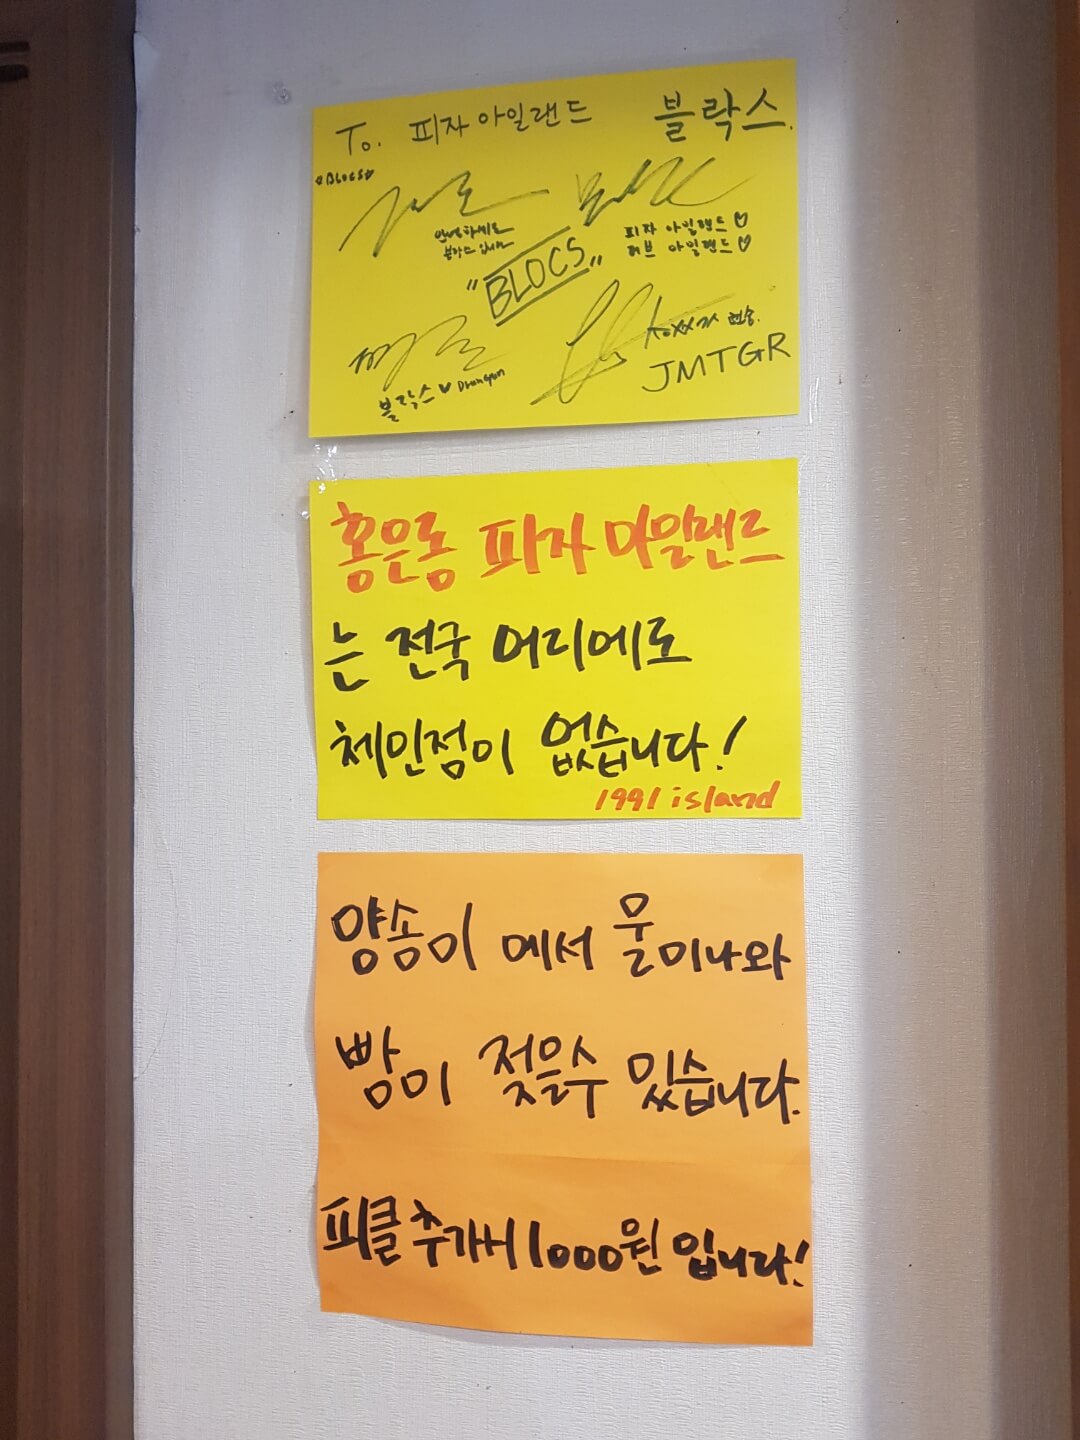 To. 피자 아일랜드 블락스.
BLOCS
안녕하세요
블락스 입니다
피자 아일랜드 ♡
러브 아일랜드 ♡
"BLOCS"
블락스 ♥
JMTGR
홍은동 피자 아일랜드
는 전국 어디에도
체인점이 없습니다!
1991 island
양송이 에서 물이나와
빵이 젖을수 있습니다.
피클 추가시 1000원 입니다!